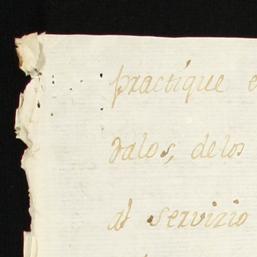 practíque e
dalos, de los
al servizio